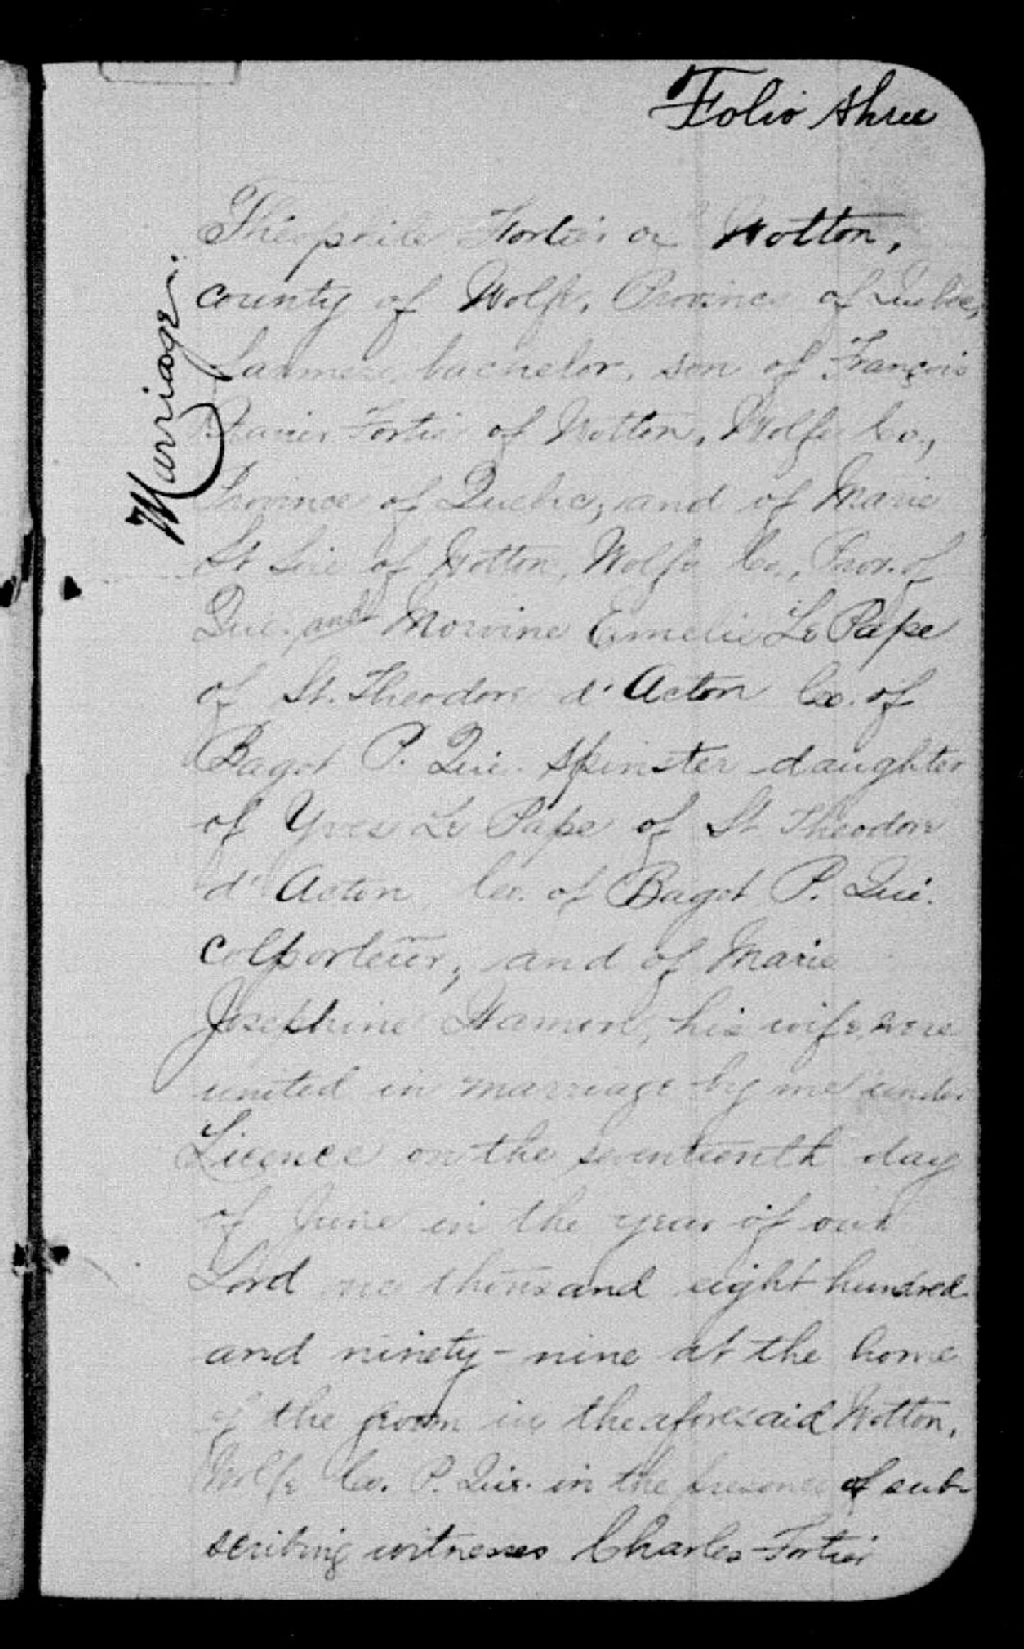 Folio three
Marriage.
Théophile Fortier of Wotton,
county of Wolfe, Province of Quebec,
farmer, bachelor, son of François
Xavier Fortier of Wotton, Wolfe Co.,
Province of Quebec, and of Marie
of Wotton, Wolfe Co., Prov. of
Que. and Morvine Emelie Le Pape
of St. Theodore d'Acton Co. of
Bagot P. Que. spinster daughter
of Yves Le Pape of St Theodore
d'Acton Co. of Bagot P. Que.
colporteur, and of Marie
Josephine Hamon, his wife, were
united in marriage by me under
Licence on the seventeenth day
of June in the year of our
Lord one thousand eight hundred
and ninety-nine at the home
of the groom in the aforesaid Wotton,
Wolfe Co. P. Que. in the presence of sub-
scribing witnesses Charles Fortier